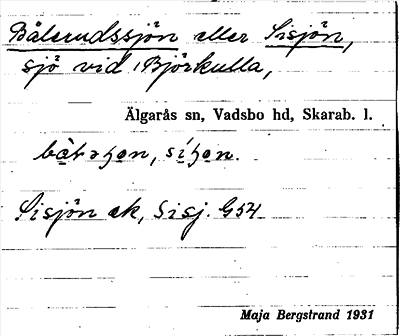 Bålerudssjön eller Sisjön,
sjö vid Björkulla,
Älgarås sn, Vadsbo hd, Skarab. l.
Sisjön ek, Sisj. G54
Maja Bergstrand 1931